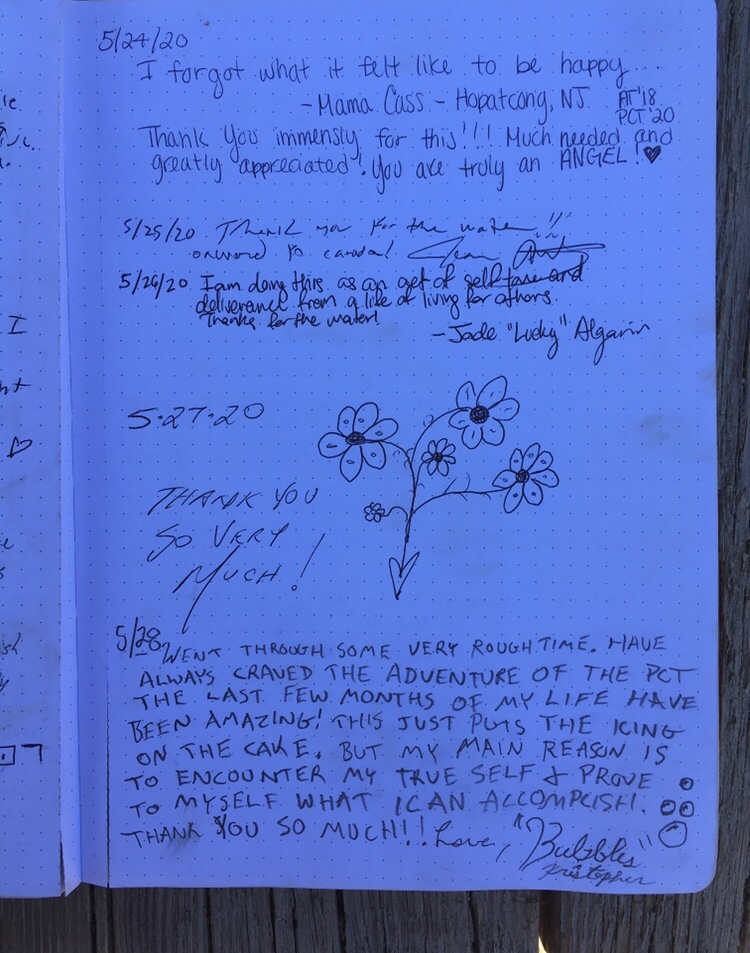 5/24/20
I forgot what it felt like to be happy
- Mama Cass - Hopatcong, NJ AT'18
PCT'20
Thank you immensly for this!!! Much needed and
greatly appreciated! You are truly an ANGEL!♥
5/25/20 Thank you for the water!!
onward to canada!
5/26/20 I am doing this as an act of self love and
deliverance from a life of living for others.
Thanks for the water!
- Jade "Lucky" Algarin
5·27·20
THANK YOU
SO VERY
MUCH!
5/28 WENT THROUGH SOME VERY ROUGH TIME. HAVE
ALWAYS CRAVED THE ADVENTURE OF THE PCT
THE LAST FEW MONTHS OF MY LIFE HAVE
BEEN AMAZING! THIS JUST PUTS THE ICING
ON THE CAKE. BUT MY MAIN REASON IS
TO ENCOUNTER MY TRUE SELF & PROVE
TO MYSELF WHAT I CAN ACCOMPLISH.
THANK YOU SO MUCH!! Love, "Bubbles"
Kristopher